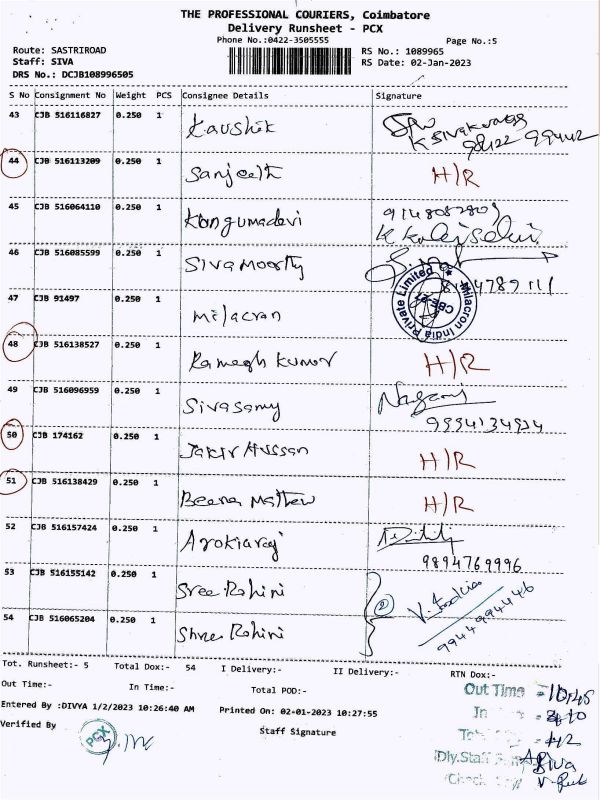 THE PROFESSIONAL COURIERS, Coimbatore
Delivery Runsheet - PCX
Phone No.:0422-3505555 Page No.:5
Route: SASTRIROAD RS No.: 1089965
Staff: SIVA RS Date: 02-Jan-2023
DRS No.: DCJB108996505
S No Consignment No Weight PCS Consignee Details Signature
43 CJB 516116827 0.250 1 Kaushik
K Sivakumar
98422 99442
44 CJB 516113209 0.250 1 Sanjeeth H/R
45 CJB 516064110 0.250 1 Kongumadevi
46 CJB 516085599 0.250 1 Sivamoorthy
47 CJB 91497 0.250 1 Milacron Milacron India Private Limited CBE
48 CJB 516138527 0.250 1 Ramesh Kumar H/R
49 CJB 516096959 0.250 1 Sivasamy Nagaraj
9994134934
50 CJB 174162 0.250 1 Jakir Hussan H/R
51 CJB 516138429 0.250 1 Beena Mathew H/R
52 CJB 516157424 0.250 1 Arokiaraj
9894769996
53 CJB 516155142 0.250 1 Sree Rohini
2
9944994446
54 CJB 516065204 0.250 1 Shree Rohini
Tot. Runsheet:- 5 Total Dox:- 54 I Delivery:- II Delivery:- RTN Dox:-
Out Time:- In Time:- Total POD:- Out Time = 10.45
Entered By :DIVYA 1/2/2023 10:26:40 AM Printed On: 02-01-2023 10:27:55
Verified By PCX Staff Signature
Dly.Staff Siva